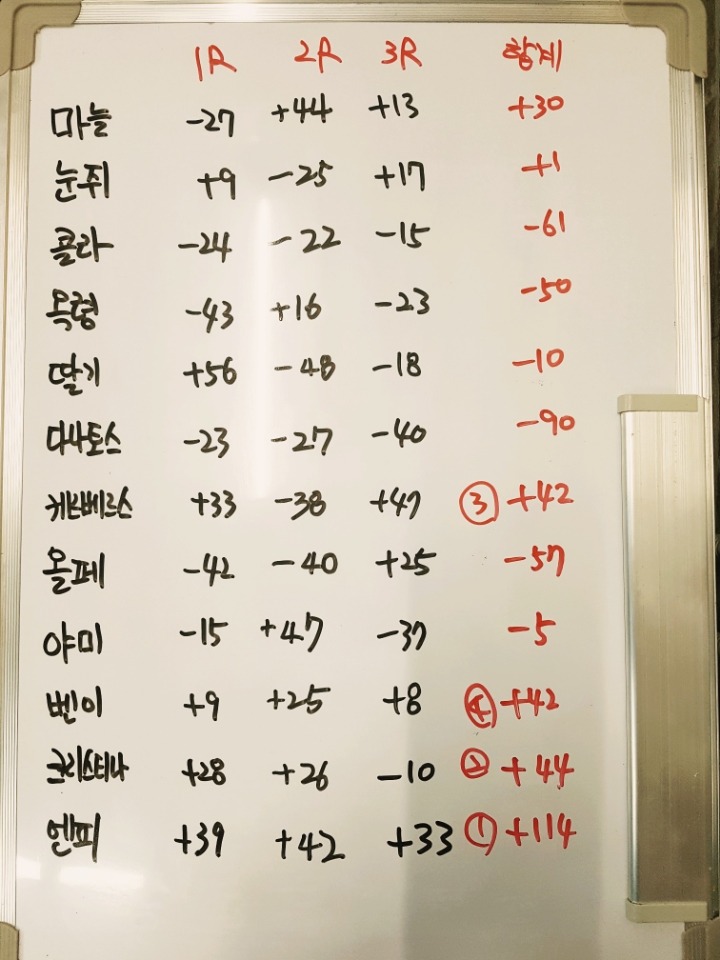 1R 2R 3R 합계
마늘 -27 +44 +13 +30
눈쮜 +9 -25 +17 +1
콜라 -24 -22 -15 -61
목령 -43 +16 -23 -50
딸기 +56 -48 -18 -10
다나토스 -23 -27 -40 -90
케르베르스 +33 -38 +47 ③ +42
몰페 -42 -40 +25 -57
야미 -15 +47 -37 -5
벤이 +9 +25 +8 ④ +42
크리스티나 +28 +26 -10 ② +44
엔피 +39 +42 +33 ① +114